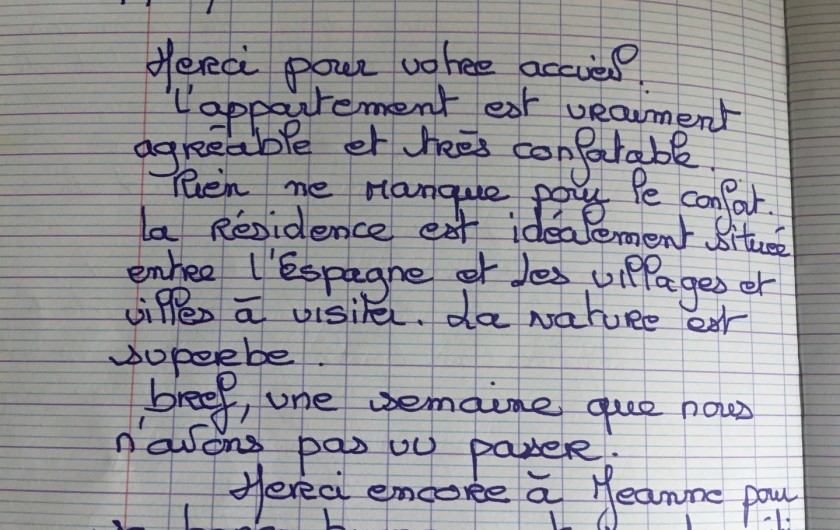 Merci pour votre accueil.
L'appartement est vraiment
agréable et très confortable.
Rien ne manque pour le confort.
La Résidence est idéalement située
entre l'Espagne et des villages et
villes à visiter. La nature est
superbe.
bref, une semaine que nous
n'avons pas vu passer.
Merci encore à Jeanne pour